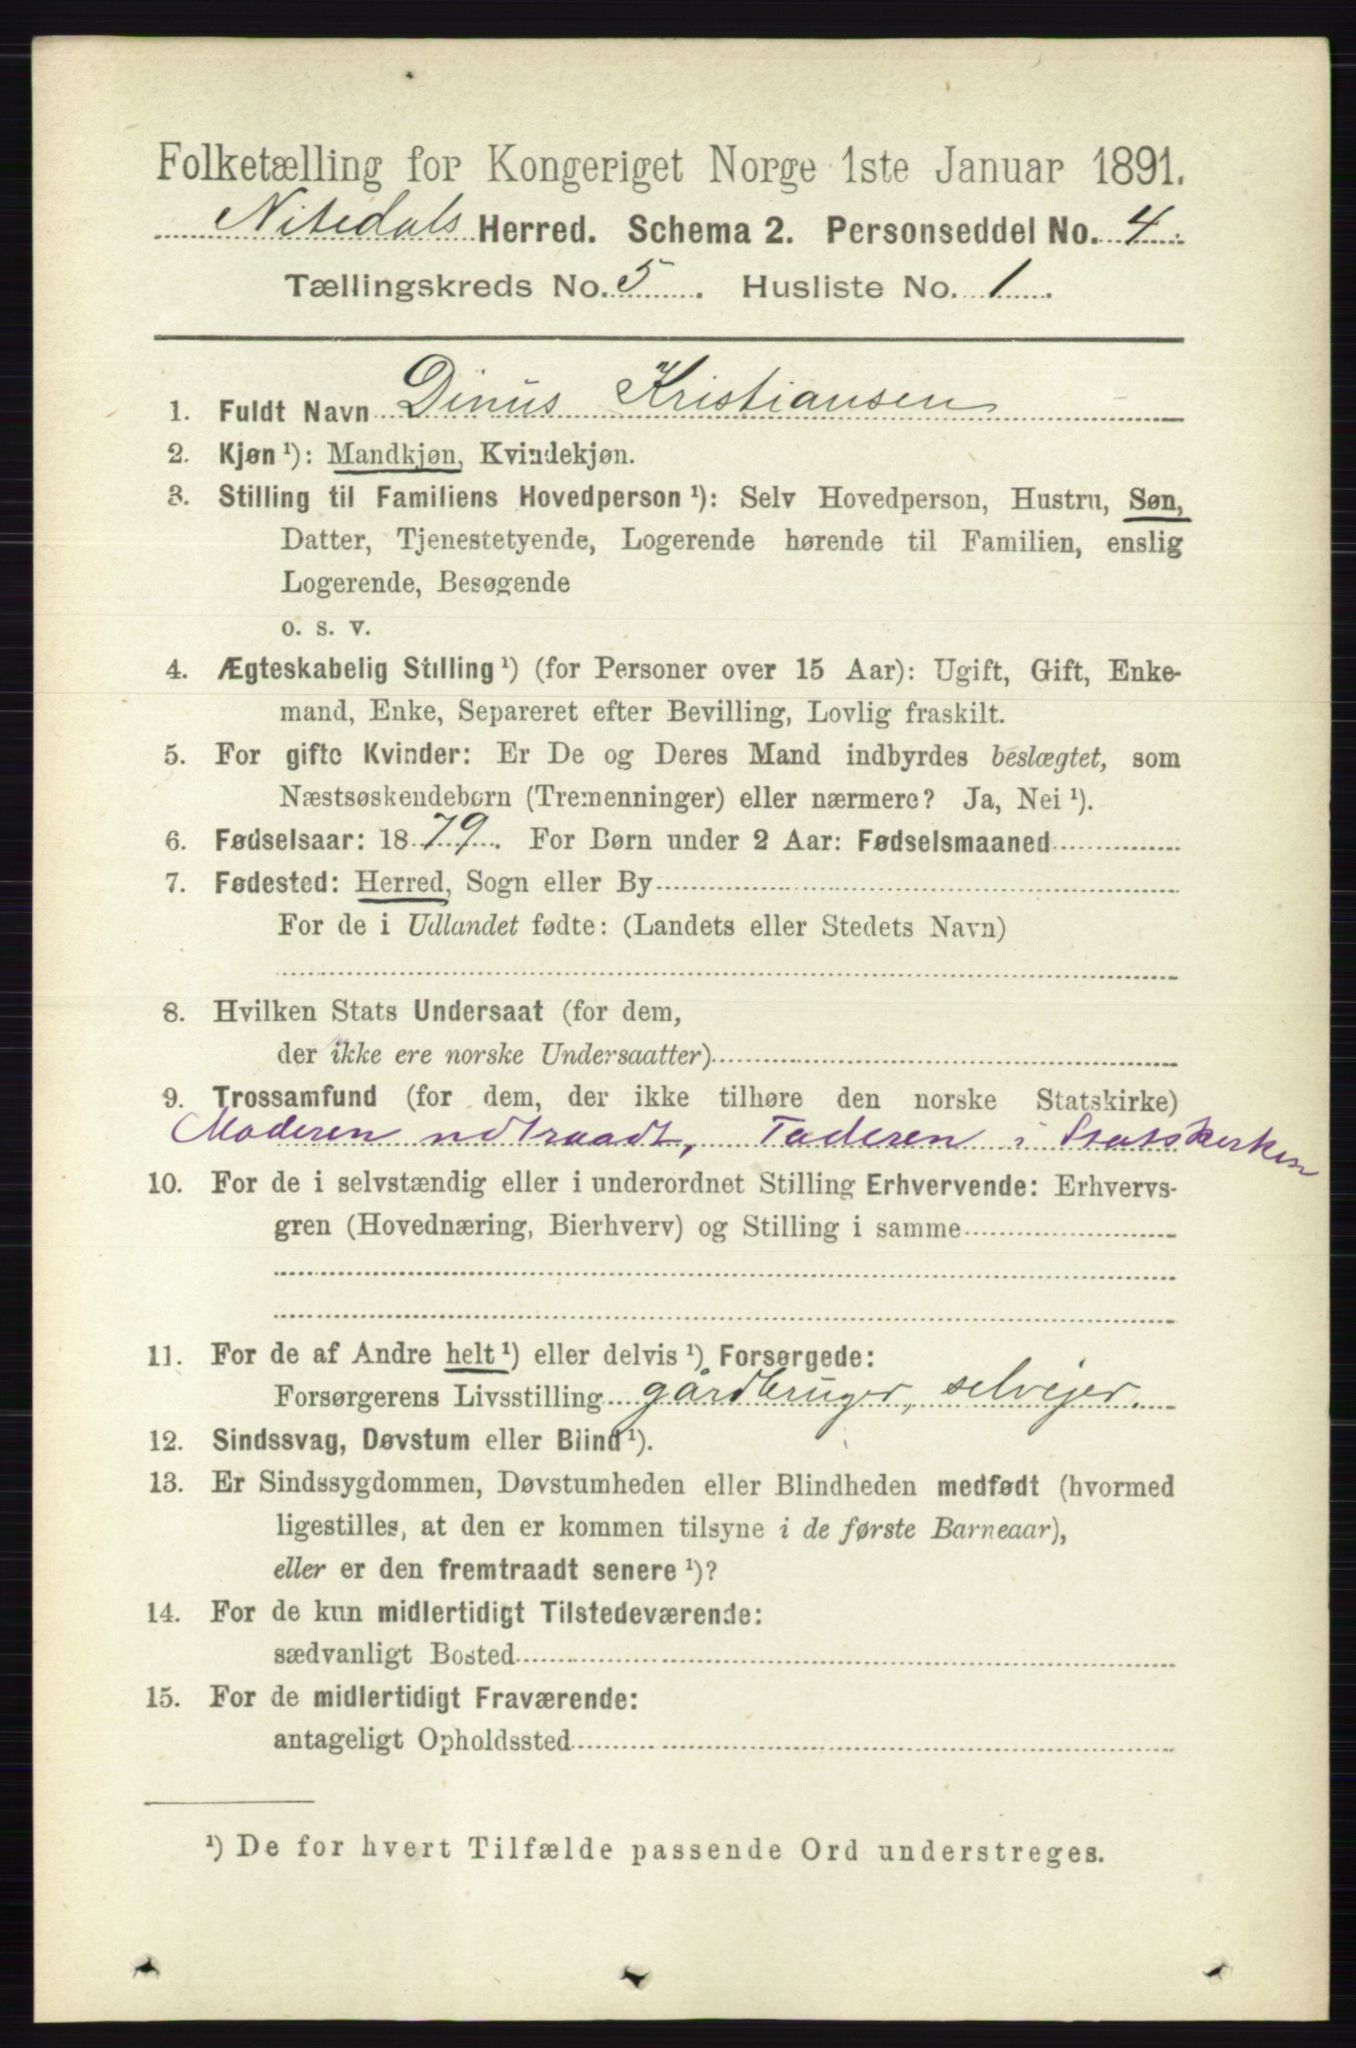 Folketælling for Kongeriget Norge 1ste Januar 1891.
Nitedals Herred. Schema 2. Personseddel No. 4
Tællingskreds No. 5. Husliste No. 1.
1. Fuldt Navn Dinus Kristiansen
2. Kjøn ¹): Mandkjøn, Kvindekjøn.
3. Stilling til Familiens Hovedperson ¹): Selv Hovedperson, Hustru, Søn,
Datter, Tjenestetyende, Logerende hørende til Familien, enslig
Logerende, Besøgende
o. s. v.
4. Ægteskabelig Stilling ¹) (for Personer over 15 Aar): Ugift, Gift, Enke-
mand, Enke, Separeret efter Bevilling, Lovlig fraskilt.
5. For gifte Kvinder: Er De og Deres Mand indbyrdes beslægtet, som
Næstsøskendebørn (Tremenninger) eller nærmere? Ja, Nei ¹).
6. Fødselsaar: 1879. For Børn under 2 Aar: Fødselsmaaned
7. Fødested: Herred, Sogn eller By
For de i Udlandet fødte: (Landets eller Stedets Navn)
8. Hvilken Stats Undersaat (for dem,
der ikke ere norske Undersaatter)
9. Trossamfund (for dem, der ikke tilhøre den norske Statskirke)
Moderen udtraadt, Faderen i Statskirken
10. For de i selvstændig eller i underordnet Stilling Erhvervende: Erhvervs-
gren (Hovednæring, Bierhverv) og Stilling i samme
11. For de af Andre helt ¹) eller delvis ¹) Forsørgede:
Forsørgerens Livsstilling gårdbruger, selvejer.
12. Sindssvag, Døvstum eller Blind ¹).
13. Er Sindssygdommen, Døvstumheden eller Blindheden medfødt (hvormed
ligestilles, at den er kommen tilsyne i de første Barneaar),
eller er den fremtraadt senere ¹)?
14. For de kun midlertidigt Tilstedeværende:
sædvanligt Bosted
15. For de midlertidigt Fraværende:
antageligt Opholdssted
¹) De for hvert Tilfælde passende Ord understreges.